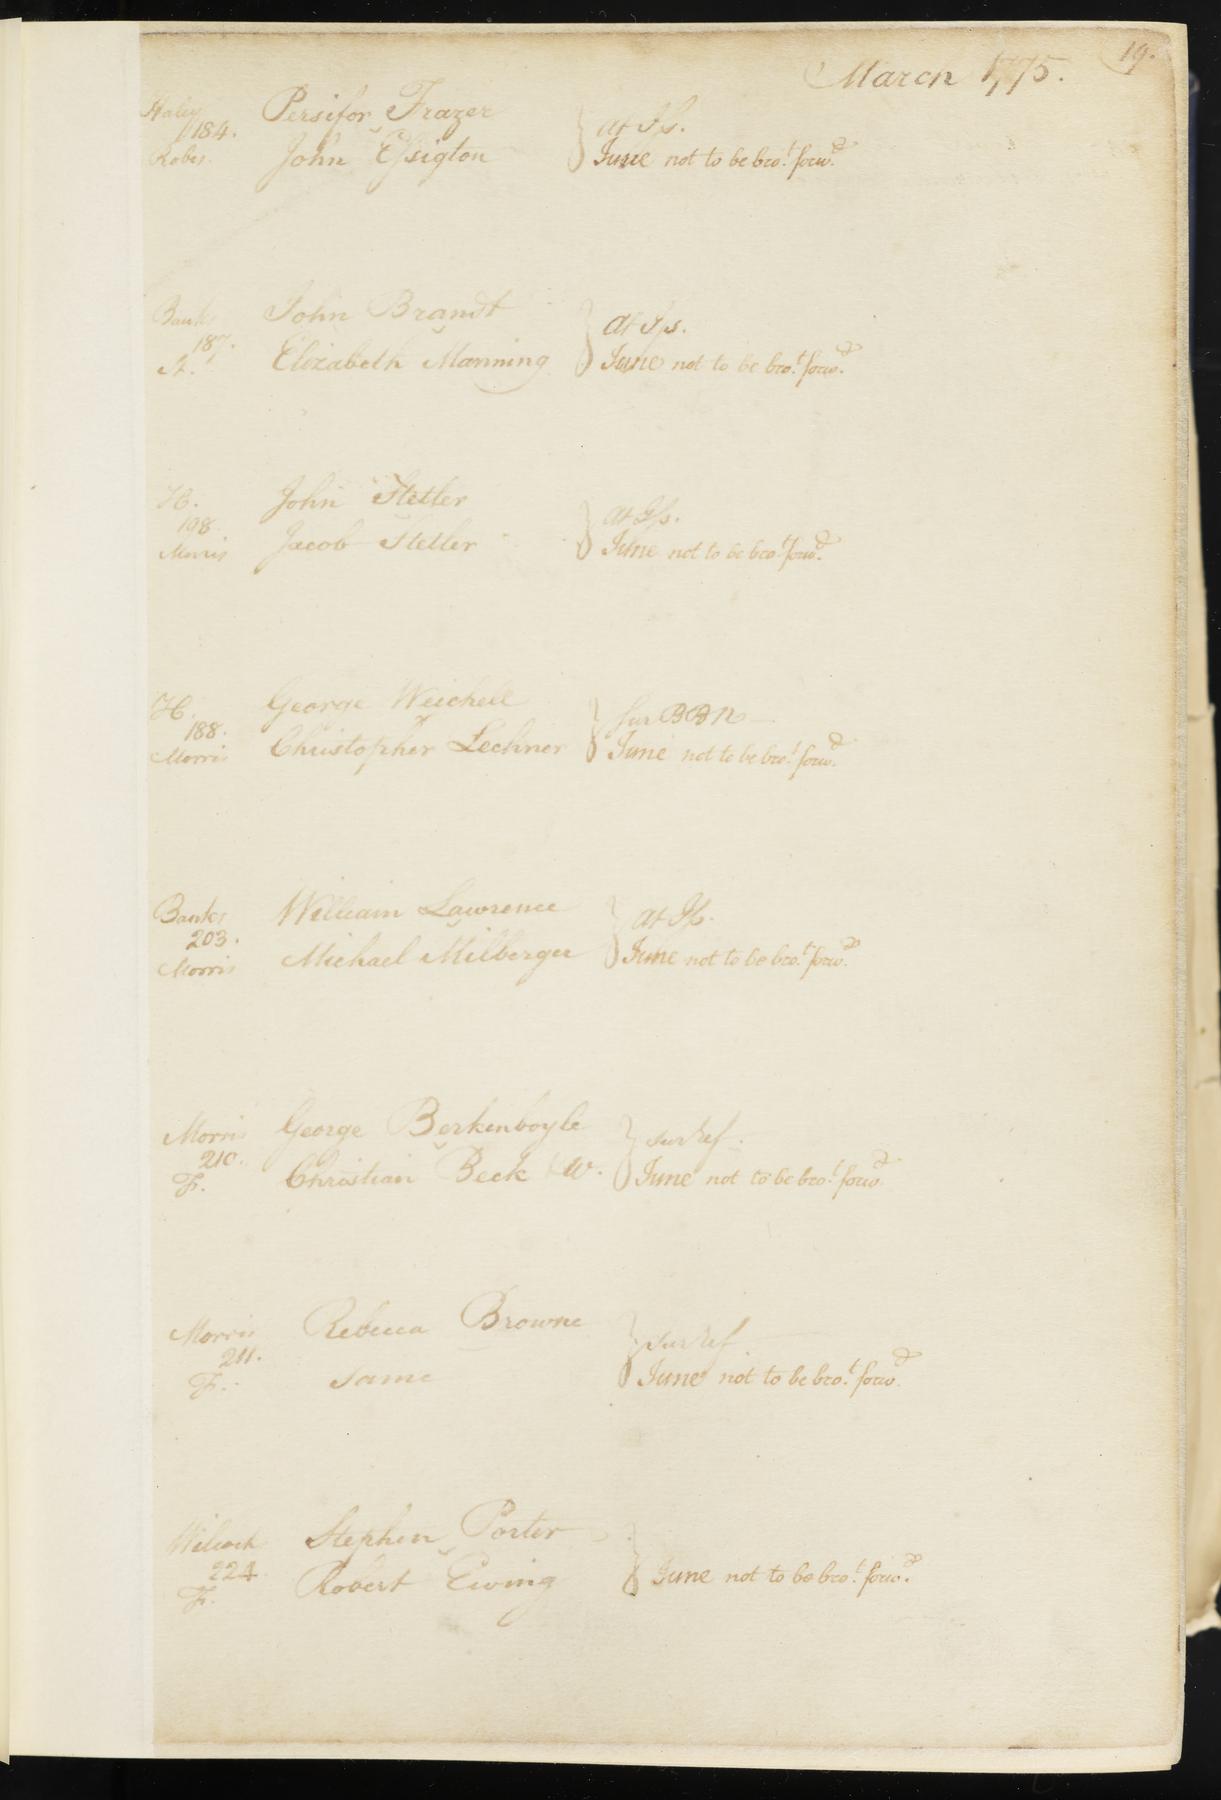 19.
March 1775.
Haley Persifor Frazer
184. at Iſs.
Robes John Eſsigton June not to be bro.t forw.d
Banks John Brandt
187. at Iſs.
Elizabeth Manning June not to be bro.t forw.d
H. John Stetler
198 at Iſs.
Morris Jacob Stetler June not to be bro.t forw.d
H. George Weichell
188. Sur
Morris Christopher Lechner June not to be bro.t forw.d
Banks William Lawrence
203. at Iſs.
Morris Michael Milberger June not to be bro.t forw.d
Morris George Berkenboyle
210. sur ref.
F. Christian Beck w. June not to be bro.t forw.d
Morris Rebecca Browne
211. sur ref
F. same June not to be bro.t forw.d
Wilcock Stephen Porter
224
F. Robert Ewing June not to be bro.t forw.d